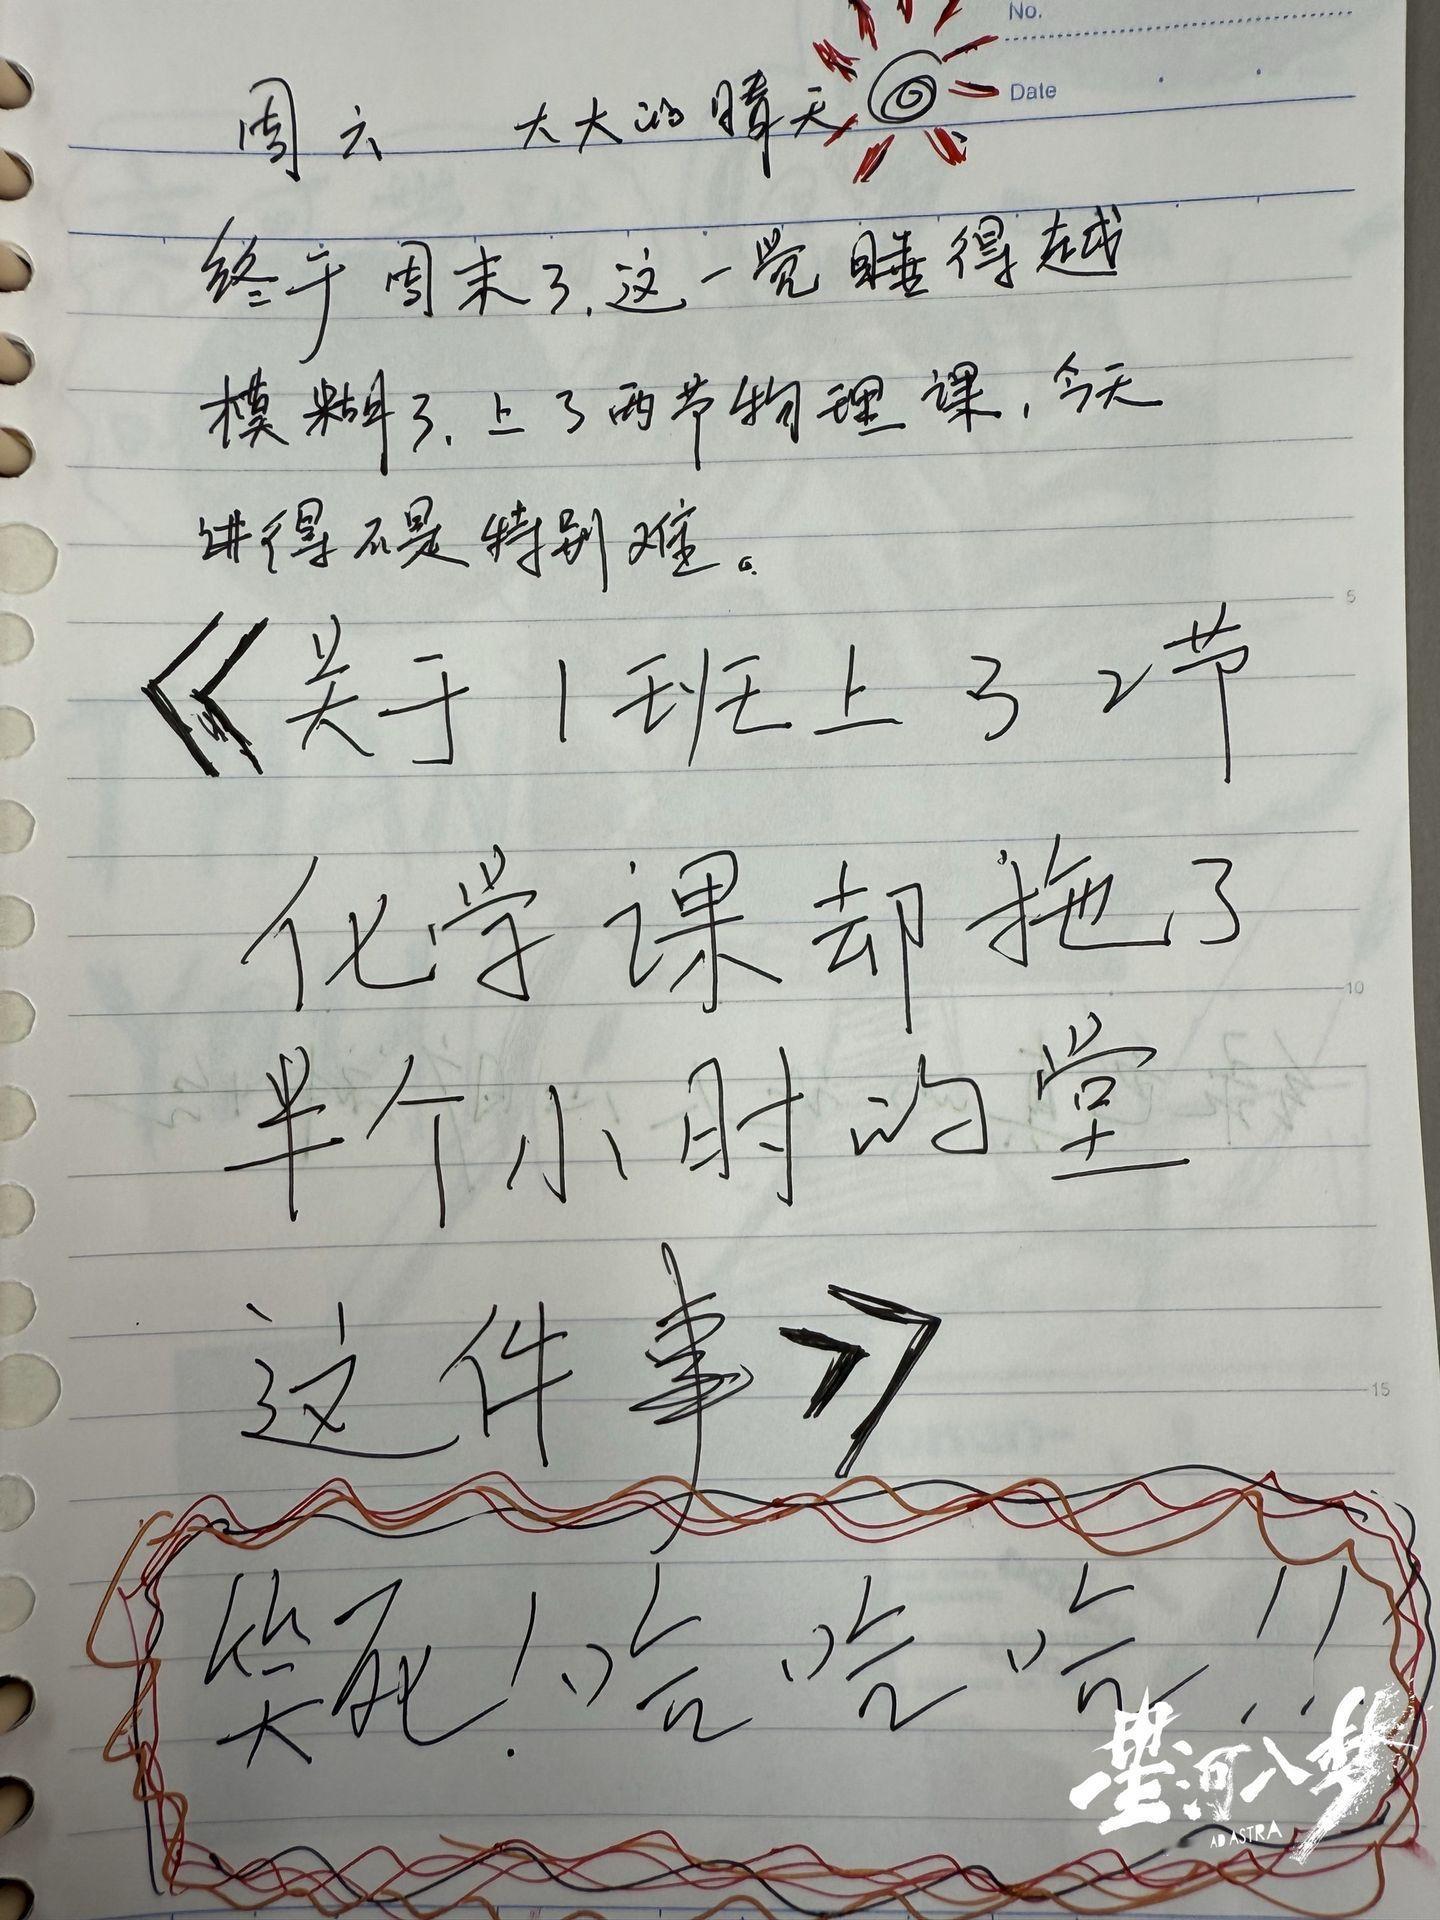 No.
Date
周六 大大的晴天
终于周末了,这一觉睡得越
模糊了,上了两节物理课,今天
讲得不是特别难。
《关于1班上了2节
化学课却拖了
半个小时的堂
这件事》
笑死!哈哈哈!!
5
10
15
星河入梦
AD ASTRA